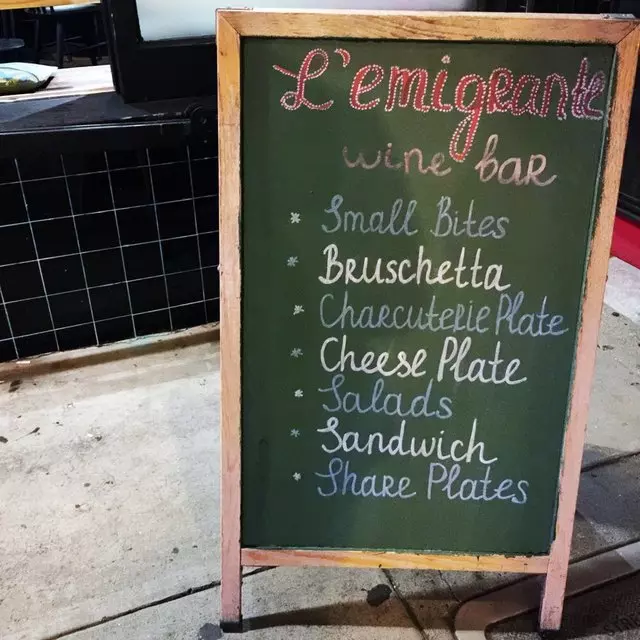 L'emigrante
wine bar
* Small Bites
* Bruschetta
* Charcuterie Plate
* Cheese Plate
* Salads
* Sandwich
* Share Plates